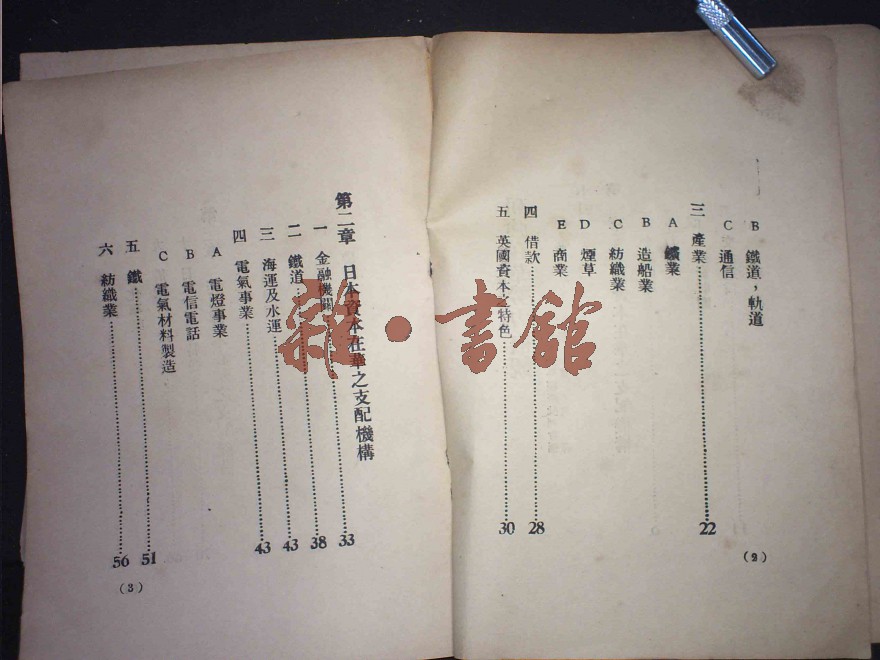 B 鐵道，軌道
C 通信
三 產業……22
A 鑛業
B 造船業
C 紡織業
D 煙草
E 商業
四 借款……28
五 英國資本之特色……30
(2)
第二章 日本資本在華之支配機構……33
一 金融機關……38
二 鐵道……43
三 海運及水運……43
四 電氣事業
A 電燈事業
B 電信電話
C 電氣材料製造
五 鐵……51
六 紡織業……56
(3)
雜·書館